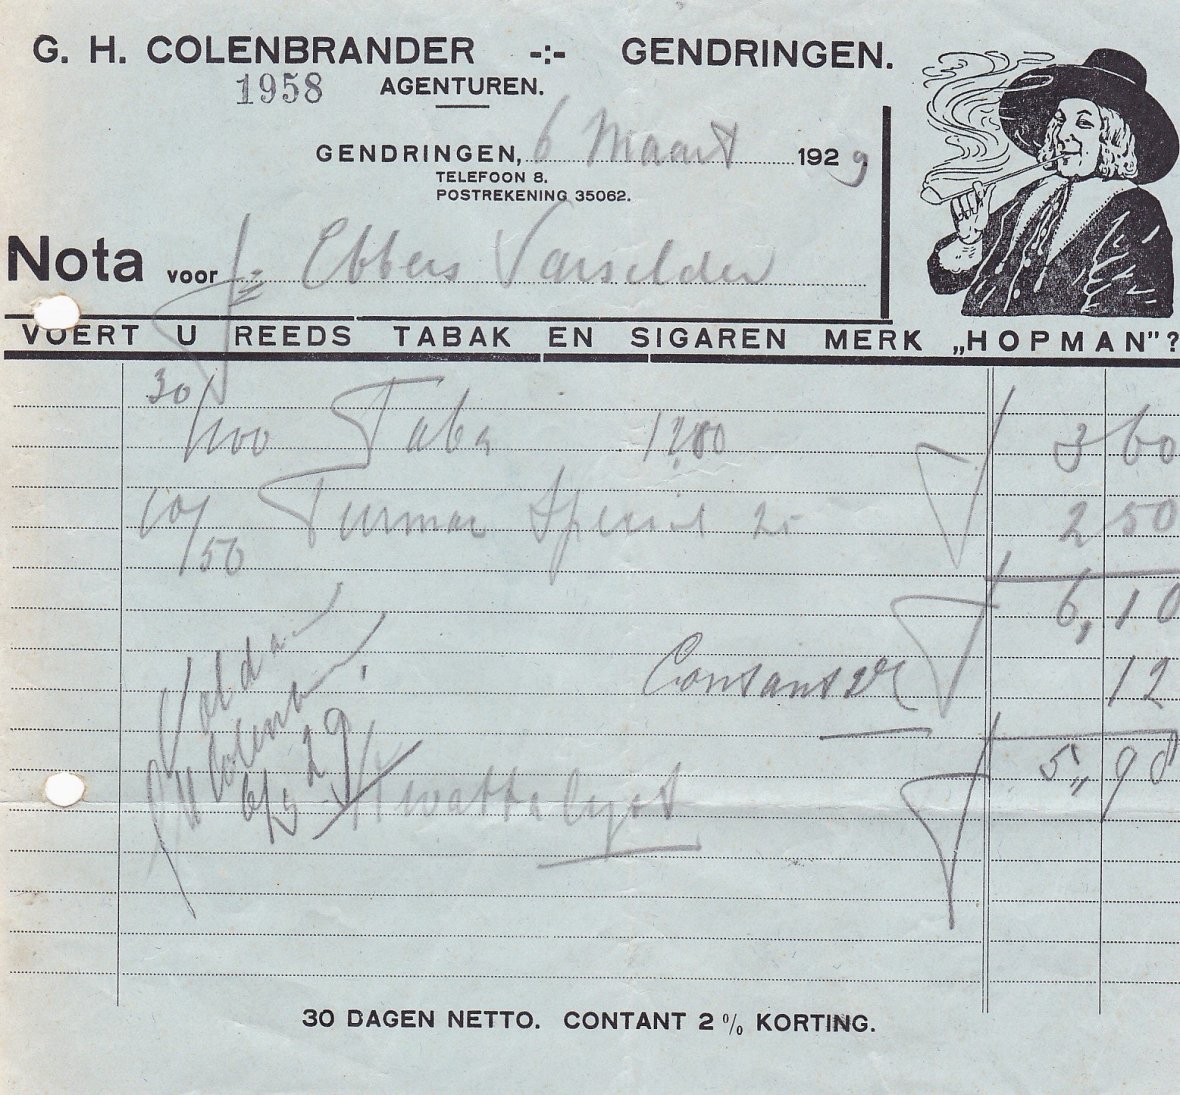 G. H. COLENBRANDER -:- GENDRINGEN.
1958 AGENTUREN.
GENDRINGEN, 6 Maart 1929
TELEFOON 8.
POSTREKENING 35062.
Nota voor Ebbers Varselder
VOERT U REEDS TABAK EN SIGAREN MERK „HOPMAN”?
30/100 Taba 12.00 f 3 60
10/50 Special 25 f 2 50
f 6,10
Contant 2% 12
f 5,,98
Voldaan
Colenbr
6/3 29
30 DAGEN NETTO. CONTANT 2 % KORTING.